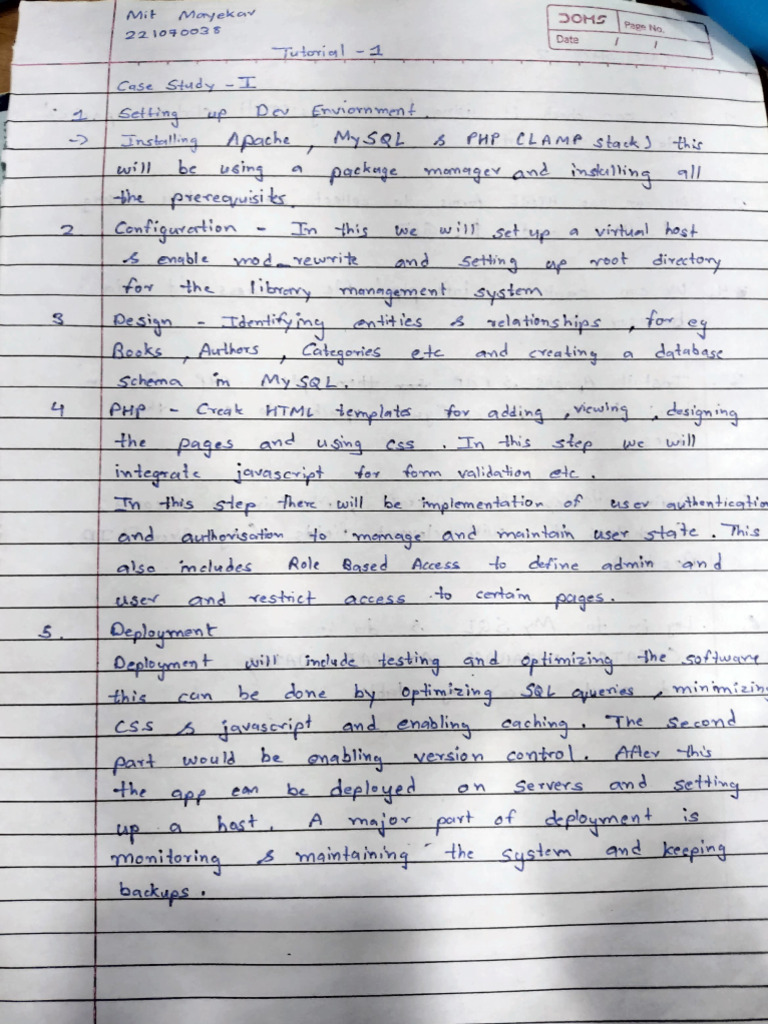 Mit Mayekar
221070038
DOMS
Page No.
Date / /
Tutorial - 1
Case Study - I
1 Setting up Dev Enviornment.
→ Installing Apache, MySQL & PHP (LAMP stack) this
will be using a package manager and installing all
the prerequisits.
2 Configuration - In this we will set up a virtual host
& enable mod_rewrite and setting up root directory
for the library management system
3 Design - Identifying entities & relationships, for eg
Books, Authors, Categories etc and creating a database
schema in MySQL.
4 PHP - Creak HTML templates for adding, viewing, designing
the pages and using css. In this step we will
integrate javascript for form validation etc.
In this step there will be implementation of user authentication
and authorisation to manage and maintain user state. This
also includes Role Based Access to define admin and
user and restrict access to certain pages.
5. Deployment
Deployment will include testing and optimizing the software
this can be done by optimizing SQL queries, minimizing
CSS & javascript and enabling caching. The second
part would be enabling version control. After this
the app can be deployed on servers and setting
up a host. A major part of deployment is
monitoring & maintaining the system and keeping
backups.